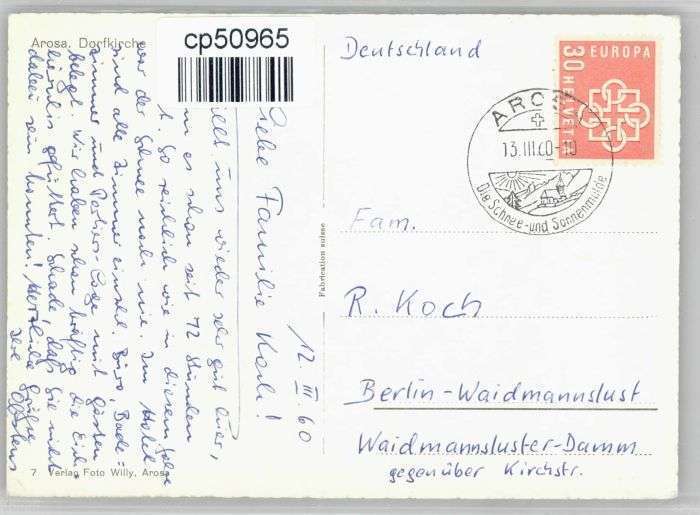 Arosa, Dorfkirche
cp50965
Deutschland
30 EUROPA
HELVETIA
AROSA
13.III.60-10
Die Schnee- und Sonnenmulde
12. III. 60
Liebe Familie Koch!
uns wieder sehr gut hier,
es schon seit 72 Stunden
So reichlich wie in diesem Jahre
war der Schnee noch nie. Im Hotel
sind alle Zimmer einschl. Büro, Bade=
zimmer und Portier-Loge mit Gästen
belegt. Wir haben schon kräftig die Eich-
gefüttert. Schade, daß Sie nicht
dabei sein konnten! Herzliche Grüße
Ihre
Fam.
R. Koch
Berlin-Waidmannslust
Waidmannsluster-Damm
gegenüber Kirchstr.
Fabrication suisse
7 Verlag Foto Willy, Arosa